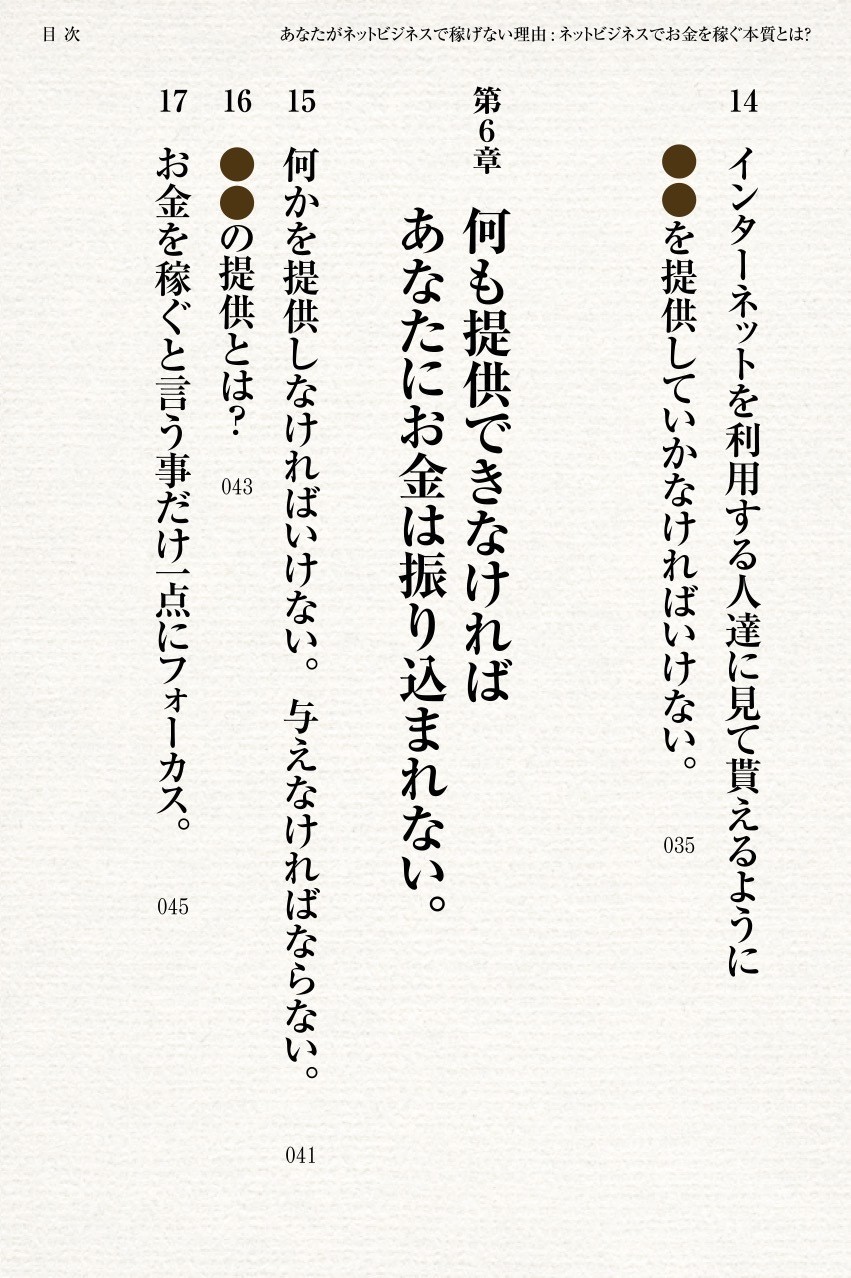 目次
あなたがネットビジネスで稼げない理由：ネットビジネスでお金を稼ぐ本質とは?
14 インターネットを利用する人達に見て貰えるように
●●を提供していかなければいけない。 035
第6章 何も提供できなければ
あなたにお金は振り込まれない。
15 何かを提供しなければいけない。 与えなければならない。 041
16 ●●の提供とは? 043
17 お金を稼ぐと言う事だけ一点にフォーカス。 045